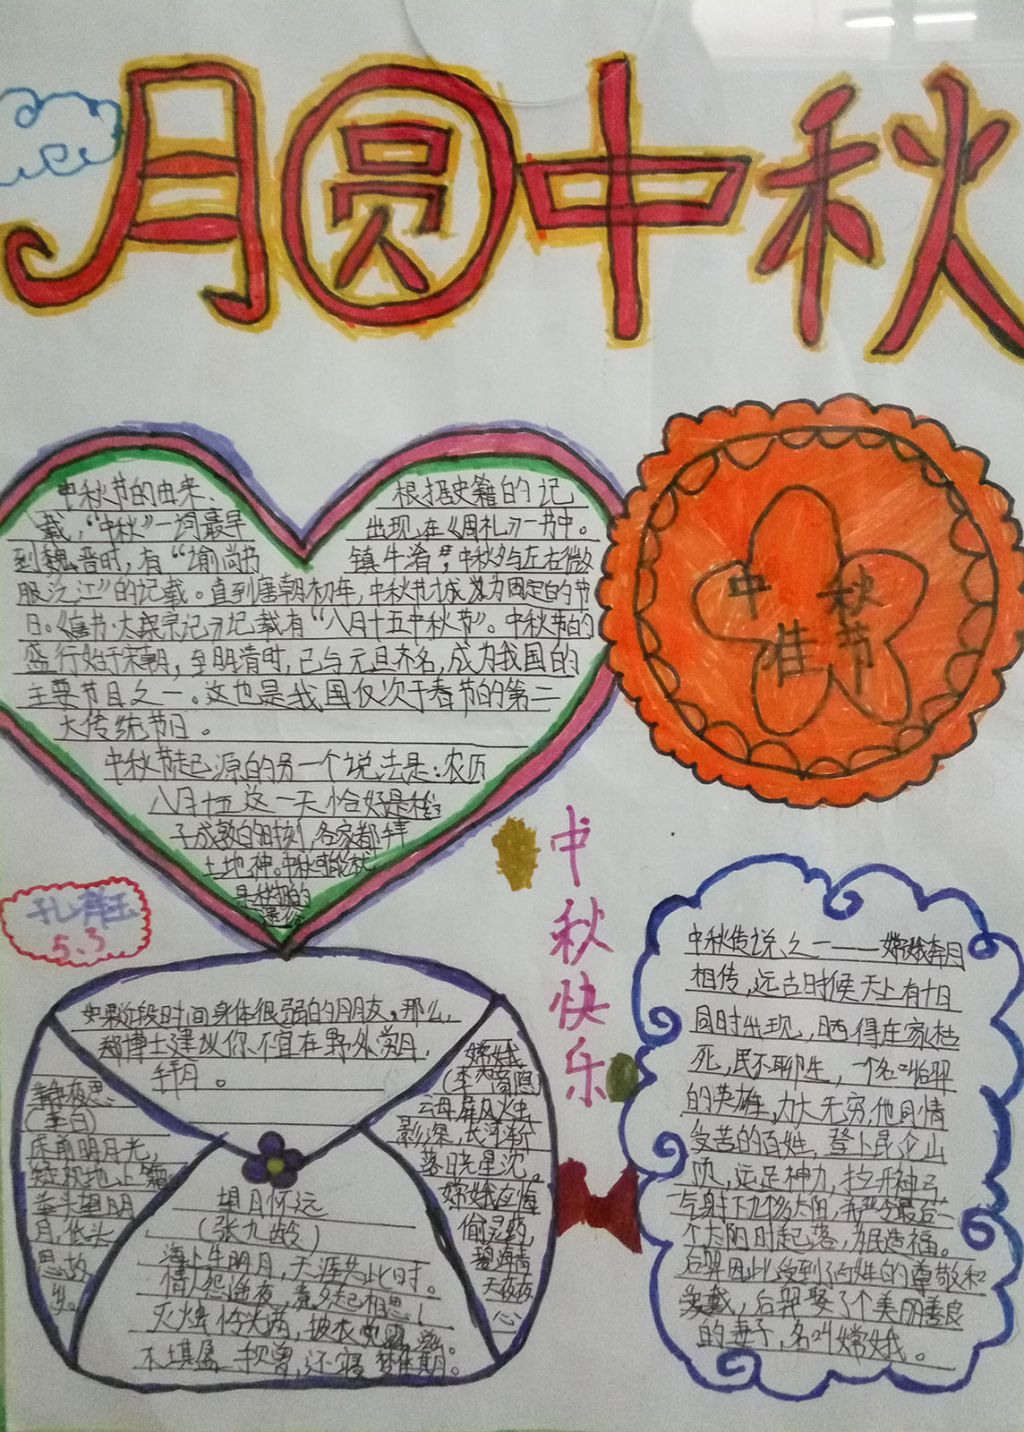 月圆中秋
中秋节的由来、根据史籍的记
载，“中秋”一词最早出现在《周礼》一书中。
到魏晋时，有“谕尚书镇牛渚，中秋夕与左右微
服泛江”的记载。直到唐朝初年，中秋节才成为固定的节
日。《唐书·太宗记》记载有“八月十五中秋节”。中秋节的
盛行始于宋朝，至明清时，已与元旦齐名，成为我国的
主要节日之一。这也是我国仅次于春节的第二
大传统节日。
中秋节起源的另一个说法是：农历
八月十五这一天恰好是稻
子成熟的时刻，各家都拜
土地神。中秋可能就
是秋报的
遗俗
中秋
佳节
中秋快乐
5.3
中秋传说之一——嫦娥奔月
相传，远古时候天上有十日
同时出现，晒得庄家枯
死，民不聊生，一个名叫后羿
的英雄，力大无穷，他同情
受苦的百姓，登上昆仑山
顶，运足神力，拉开神弓
一气射下九个多太阳，并严令最后一
个太阳时起落，为民造福。
后羿因此受到了百姓的尊敬和
爱戴，后羿娶了个美丽善良
的妻子，名叫嫦娥。
如果近段时间身体很弱的朋友，那么，
郑博士建议你不宜在野外赏月，
拜月。
静夜思
（李白）
床前明月光，
疑似地上霜。
举头望明
月，低头
思故
乡。
嫦娥
（李商隐）
云母屏风烛
影深，长河渐
落晓星沉。
嫦娥应悔
偷灵药，
碧海青
天夜夜
心
望月怀远
（张九龄）
海上生明月，天涯共此时。
情人怨遥夜，竟夕起相思！
灭烛怜光满，披衣觉露滋。
不堪盈手赠，还寝梦佳期。